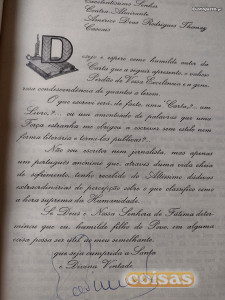 Excelentíssimo Senhor
Contra-Almirante
Américo Deus Rodrigues Thomaz
Cascais
Desejo e espero seus humilde autor da
Carta que a seguir apresento, e rodeio
Perdão de Vossa Excelência e a gene-
rosa condescendência de quantos a lerem.
O que escrevi será, de facto, uma "Carta?... um
Livro,?... ou um amontoado de palavras que uma
Força estranha me obrigou a escrever sem estilo nem
forma literária a torná-las públicas?...
Não sou escritor nem jornalista, mas apenas
um português anónimo que, através duma vida cheia
de sofrimentos, tenho recebido do Altíssimo dádivas
extraordinárias de percepção sobre o que classifico como
a hora suprema da Humanidade.
Se Deus e Nossa Senhora de Fátima deter-
minou que eu, humilde filho do Povo, em alguma
coisa possa ser útil ao meu semelhante,
que seja cumprida a Santa
e Divina Vontade
coisas